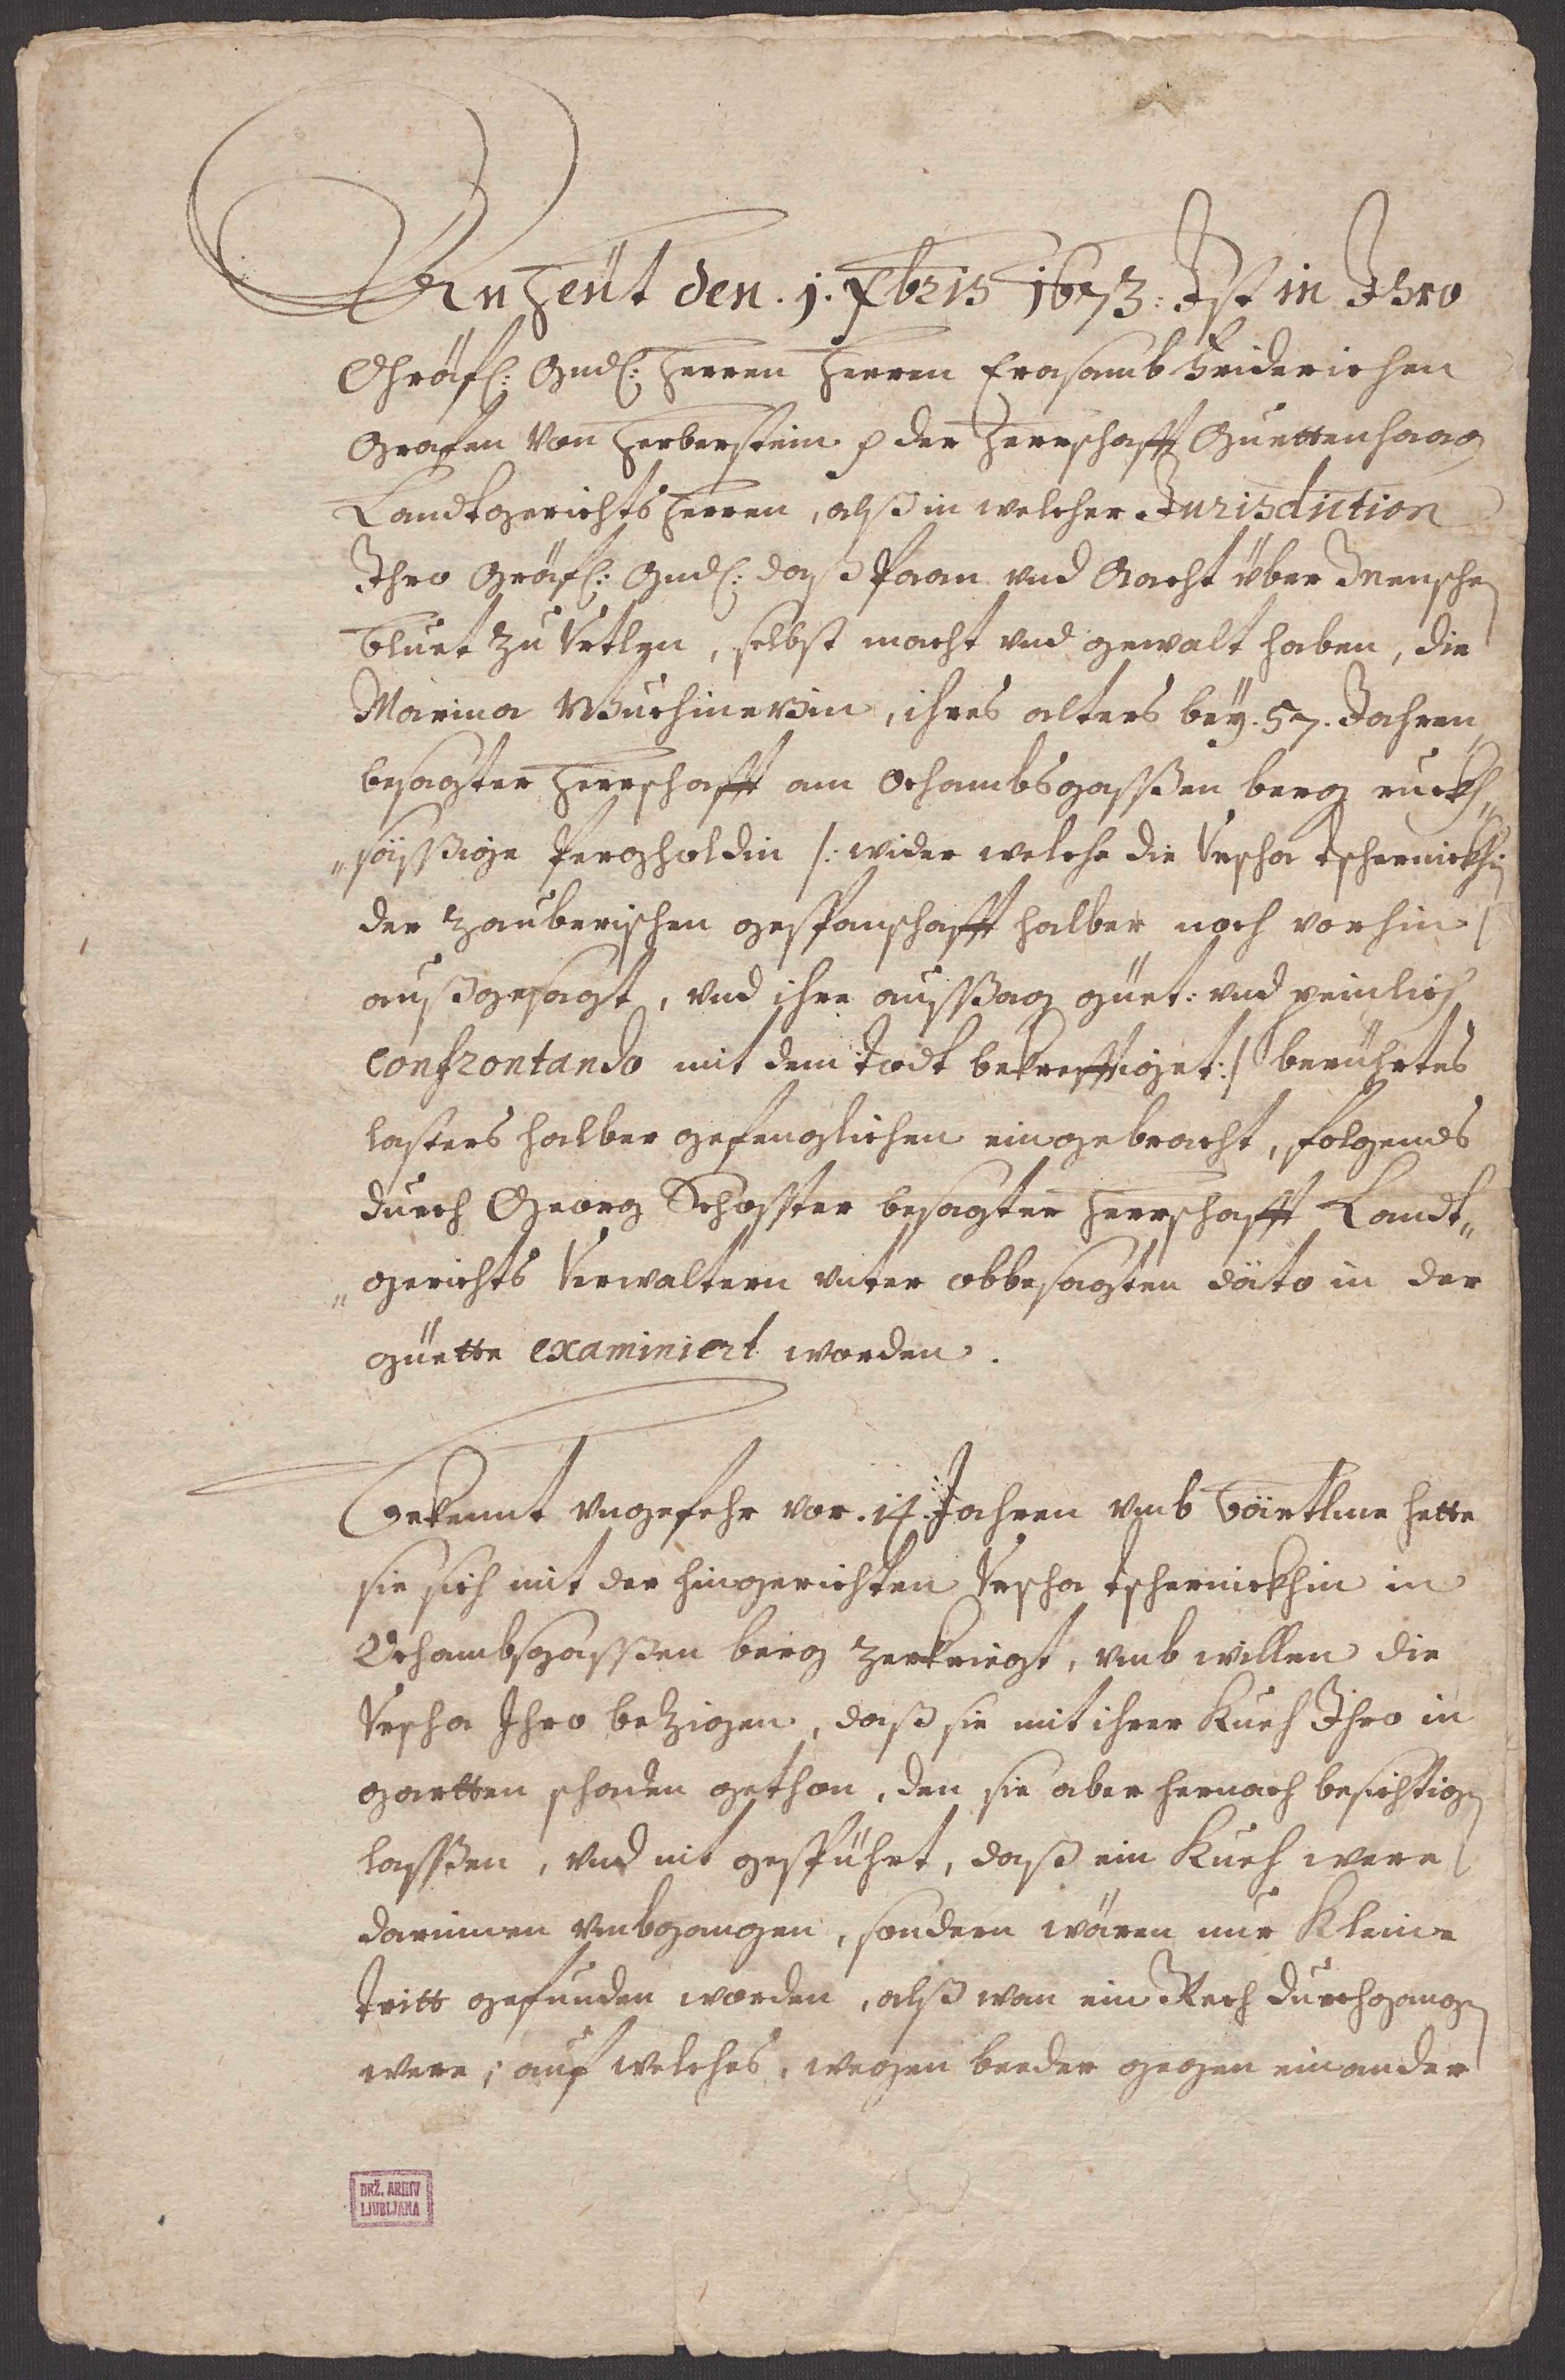 An heüt den .1. Xbris 1673: Ist in Ihro
Gräfl: Gnd: Herren Herren Erasamb Friderichen
Grafen von Herberstein p der Herrschafft Guettenhaag
Landtgerichts Herren, alß in welcher Jurisdiction
Ihro Gräfl: Gnd: daß Paan und Aacht über Menschen
bluet zu Urtlen, selbst macht und gewalt haben, die
Marina Wuchinezin, ihres alters bey .57. Jahren,
besagter Herrschafft am Schambsgassen berg ruckh„
„sässige Pergholdin /: wider welche die Urscha Tschernickhin
der Zauberischen gespanschafft halber noch vorhin
außgesagt, und ihre aussag güet: und peinlich
confrontando mit dem todt bekrefftiget :/ berührtes
lasters halber gefenglichen eingebracht, folgends
durch Georg Schosster besagter Herrschafft Landt„
„gerichts Verwaltern unter obbesagten dato in der
güette examiniert worden.
Bekennt ungefehr vor .14. Jahren umb Bärtlme hette
sie sich mit der hingerichten Urscha Tschernickhin in
Schambsgassen berg zerkriegt, umb willen die
Urscha Ihro bezigen, daß sie mit ihrer Kueh Ihro in
gartten schaden gethon, den sie aber hernach besichtigen
lassen, und nit gespührt, daß ein Kueh were
darinnen umbgangen, sondern wären nur Kleine
Tritt gefunden worden, alß wan ein Rech durchgangen
were; auf welches, wegen beeder gegen einander
DRŽ. ARHIV
LJUBLJANA